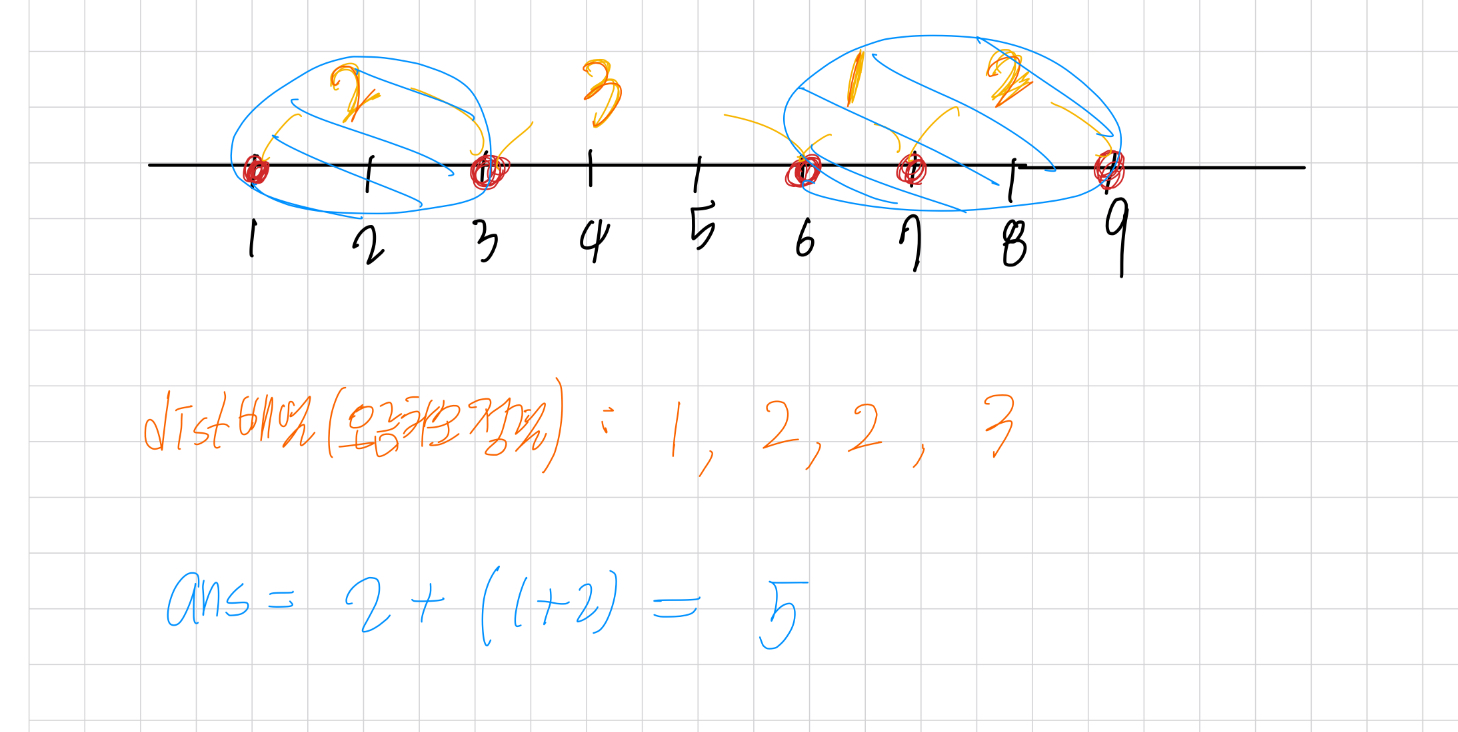 2 3 1 2
1 2 3 4 5 6 7 8 9
dist 배열(오름차순 정렬) : 1, 2, 2, 3
ans = 2 + (1+2) = 5